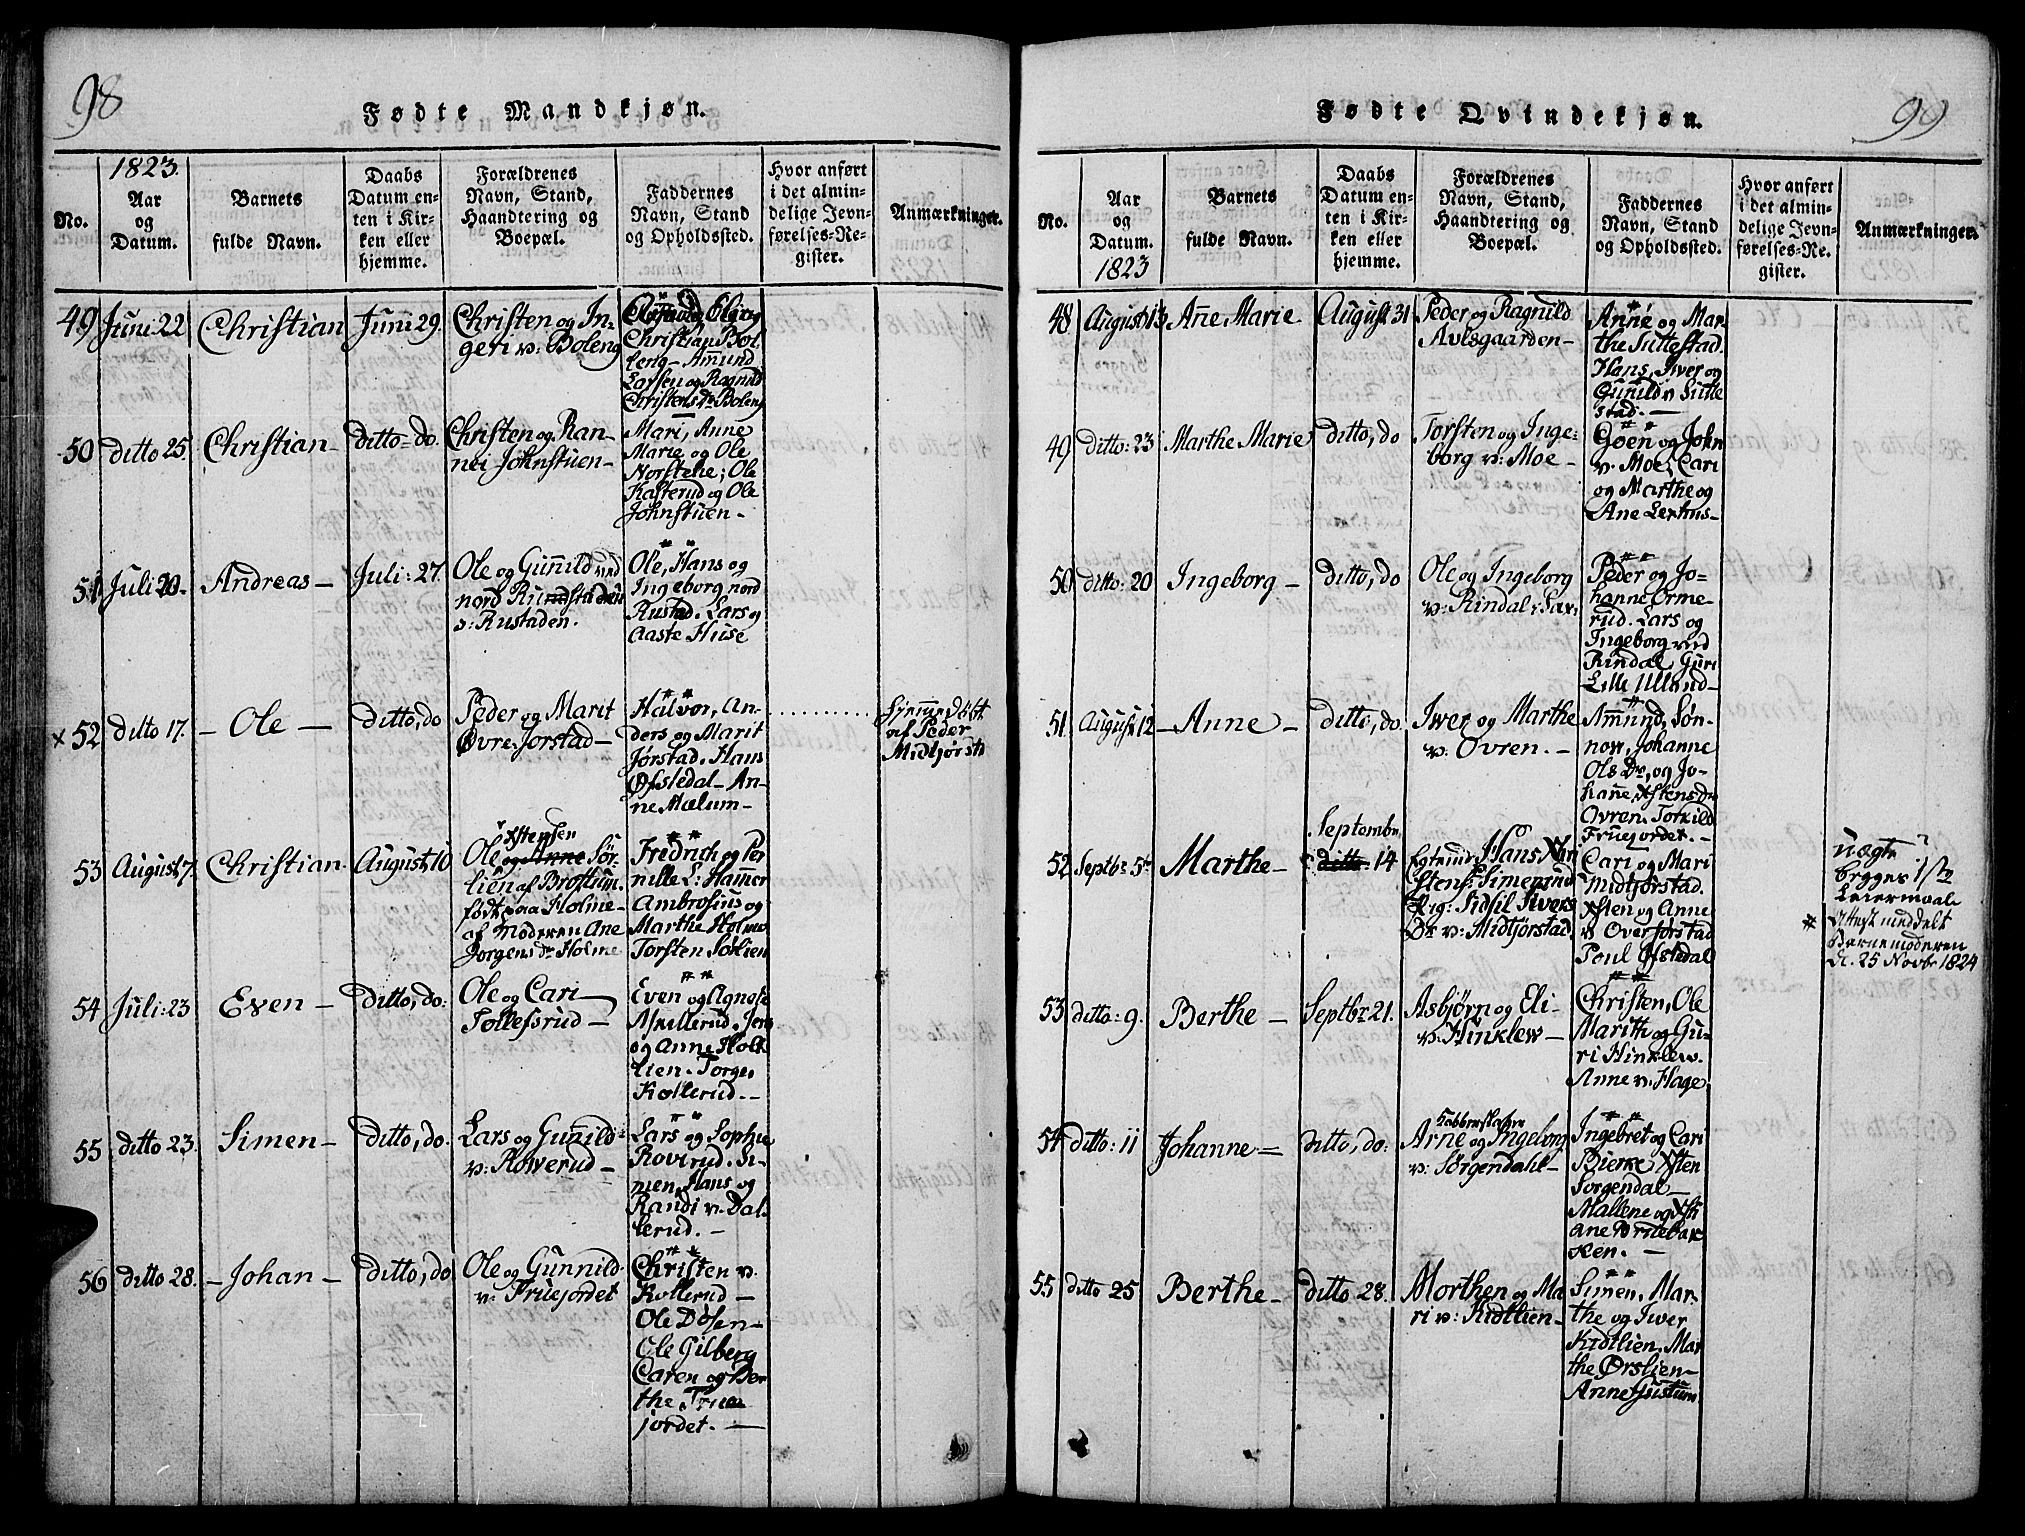 98
Fødte Mandkjøn.
1823.
No.
Aar
og
Datum.
Barnets
fulde Navn.
Daabs
Datum en-
ten i Kir-
ken eller
hjemme.
Forældrenes
Navn, Stand,
Haandtering og
Boepæl.
Faddernes
Navn, Stand
og Opholdssted.
Hvor anført
i det almin-
delige Jevn-
førelses-Re-
gister.
Anmærkninger.
49 Juni 22 Christian Juni 29.
Christen og In-
geri v: Boleng
Christian Bol-
Amund
Larsen og Ragnild
Christens Dr Boleng
50 ditto 25. Christian- ditto-do.
Christen og Ran-
nei Johnstuen-
Mari, Anne
Marie og Ole
Norstehe; Ole
Kasterud og Ole
Johnstuen-
51 Juli 20. Andreas- Juli: 27.
Ole og Gunild ved
nord
v: Rustaden.
Ole, Hans og
Ingeborg nord
Rustad. Lars og
Aaste Huse
x 52 ditto 17. -Ole- ditto, do
Peder og Marit
Øvre Jorstad-
Halvor, An-
ders og Marit
Jørstad. Hans
Øfsledal- An-
ne Mælum-
af Peder
Midtjørst:
53 August, 7. Christian- August, 10
Xstensen
Ole og Anne Sør-
lien af Brøttum.
født paa Holme-
af Moderen Ane
Jorgens Dr Holme
Fredrich og Per
nille L: Hammer
Ambrosius og
Marthe Holme
Torsten Sørlien
54 Juli: 23 Even- ditto, do:
Ole og Cari
Tollefsrud-
Even og Agnete
Askillerud. Jens
og Anne Holt-
lien. Torger
Kollerud.-
55 ditto 23. Simen- ditto, do.
Lars og Gunild
v: Rowerud-
Lars og Sophie
Roverud. Si-
men, Hans og
Randi v: Dal-
lerud.-
56 ditto 28. -Johan- ditto, do
Ole og Gunnild
v: Fruejordet
Christen v:
Kollerud-
Ole Døsen-
Ole Gilberg
Caren og Ber
the Frue
jordet.-
Fødte Qvindekjøn.
99
No.
Aar
og
Datum.
1823
Barnets
fulde Navn.
Daabs
Datum en-
ten i Kir-
ken eller
hjemme.
Forældrenes
Navn, Stand,
Haandtering og
Boepæl.
Faddernes
Navn, Stand
og Opholdssted.
Hvor anført
i det almin-
delige Jevn-
førelses-Re-
gister.
Anmærkninger.
48 August, 13 Anne Marie August 31
Peder og Ragnild
Avlsgaarden-
Anne og Mar-
the Suttestad.
Hans, Iwer og
Gunild v Sutte
stad.-
49 ditto: 23 Marthe Marie ditto, do
Torsten og Inge-
borg v: Moe-
Goen og John
v. Moe; Cari
og Marthe og
Ane Lexhus-
50 ditto: 20 Ingeborg- ditto, do
Ole og Ingeborg
v: Rindal
Peder og Jo-
hanne Orme-
rud. Lars og
Ingeborg ved
Rindal Guri
Lille Ulland-
51 August: 12 -Anne- ditto, do.
Iwer og Marthe
v: Ovren.-
Amund, Søn-
nov, Johanne
Ols Dr, og Jo-
hanne Xstensdr
Ovren. Torkild
Fruejordet.-
52 Septbr: 5te Marthe-
Septembr.
ditto 14
Hans
Xstens: Simensrud
Pig: Sidsil Ivers
Dr v: Midtjørstad.
Cari og Mari
Midtjorstad.
Xsten og Anne
v Overjørstad
Poul Øfstedal
uægte
begges 1ste
Leiermaal
* Attest meddelt
Barnemoderen
d. 25 Novbr 1824
53 ditto: 9. Berthe- Septbr 21.
Asbjørn og Eli
v: Hinklew-
Christen, Ole
Marith og Gu-
ri Hinklew.
Anne v: Hage
54 ditto: 11 Johanne- ditto, do:
Kobberslager
Arne og Ingeborg
v: Sørgendahl-
Ingebret og Cari
Bierke Xsten
Sorgendal-
Mallene og Xsti
ane Prestebak
ken.-
55 ditto 25 Berthe- ditto 28.
Morthen og Ma
ri v: Kidtlien-
Simen. Mar-
the og Iwer
Kidtlien. Mar
the Ørslien-
Anne Justum